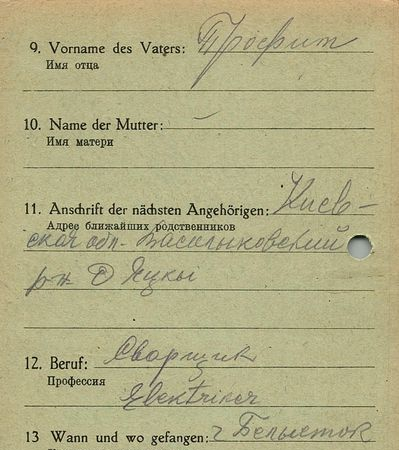 9. Vorname des Vaters: Трофим
Имя отца
10. Name der Mutter: —
Имя матери
11. Anschrift der nächsten Angehörigen: Киев-
Адрес ближайших родственников
ская обл. Васильковский
р-н с Яцкы
12. Beruf: Сварщик
Профессия
Elektriker
13 Wann und wo gefangen: г Белысток